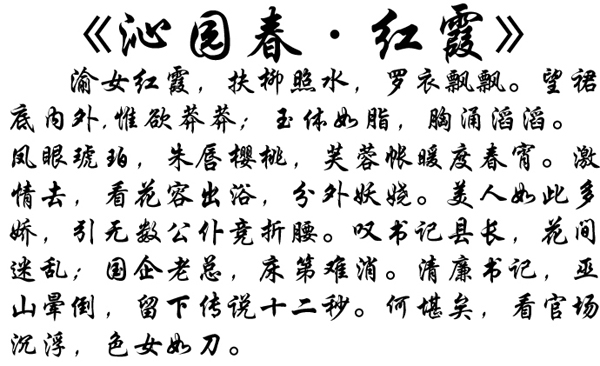 《沁园春·红霞》
渝女红霞，扶柳照水，罗衣飘飘。望裙
底内外，惟欲莽莽；玉体如脂，胸涌滔滔。
凤眼琥珀，朱唇樱桃，芙蓉帐暖度春宵。激
情去，看花容出浴，分外妖娆。美人如此多
娇，引无数公仆竞折腰。叹书记县长，花间
迷乱；国企老总，床第难消。清廉书记，巫
山晕倒，留下传说十二秒。何堪矣，看官场
沉浮，色女如刀。